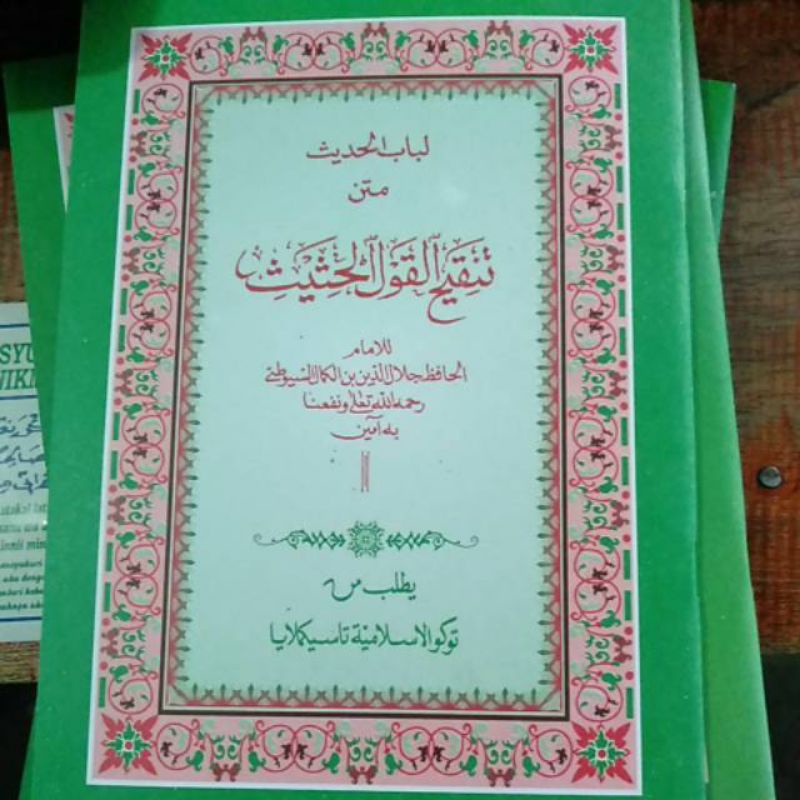 لباب الحديث
متن
تنقيح القول الحثيث
للامام
الحافظ جلال الدين بن الكمال السيوطي
رحمه الله تعالى ونفعنا
به آمين
يطلب من
توكو الاسلامية تاسيكملايا
SYU
NIKM